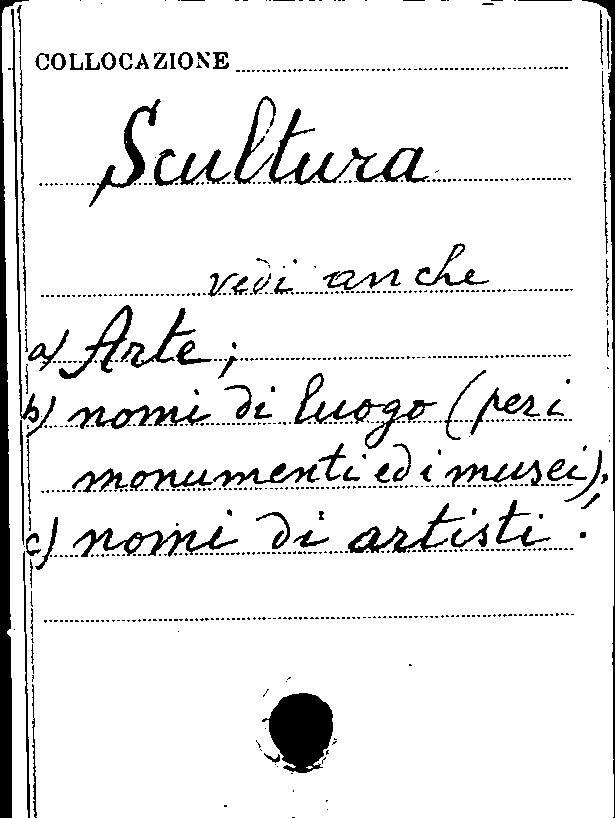 COLLOCAZIONE
Scultura
vedi anche
a) Arte;
b) nomi di luogo (per i
monumenti ed i musei);
c) nomi di artisti.